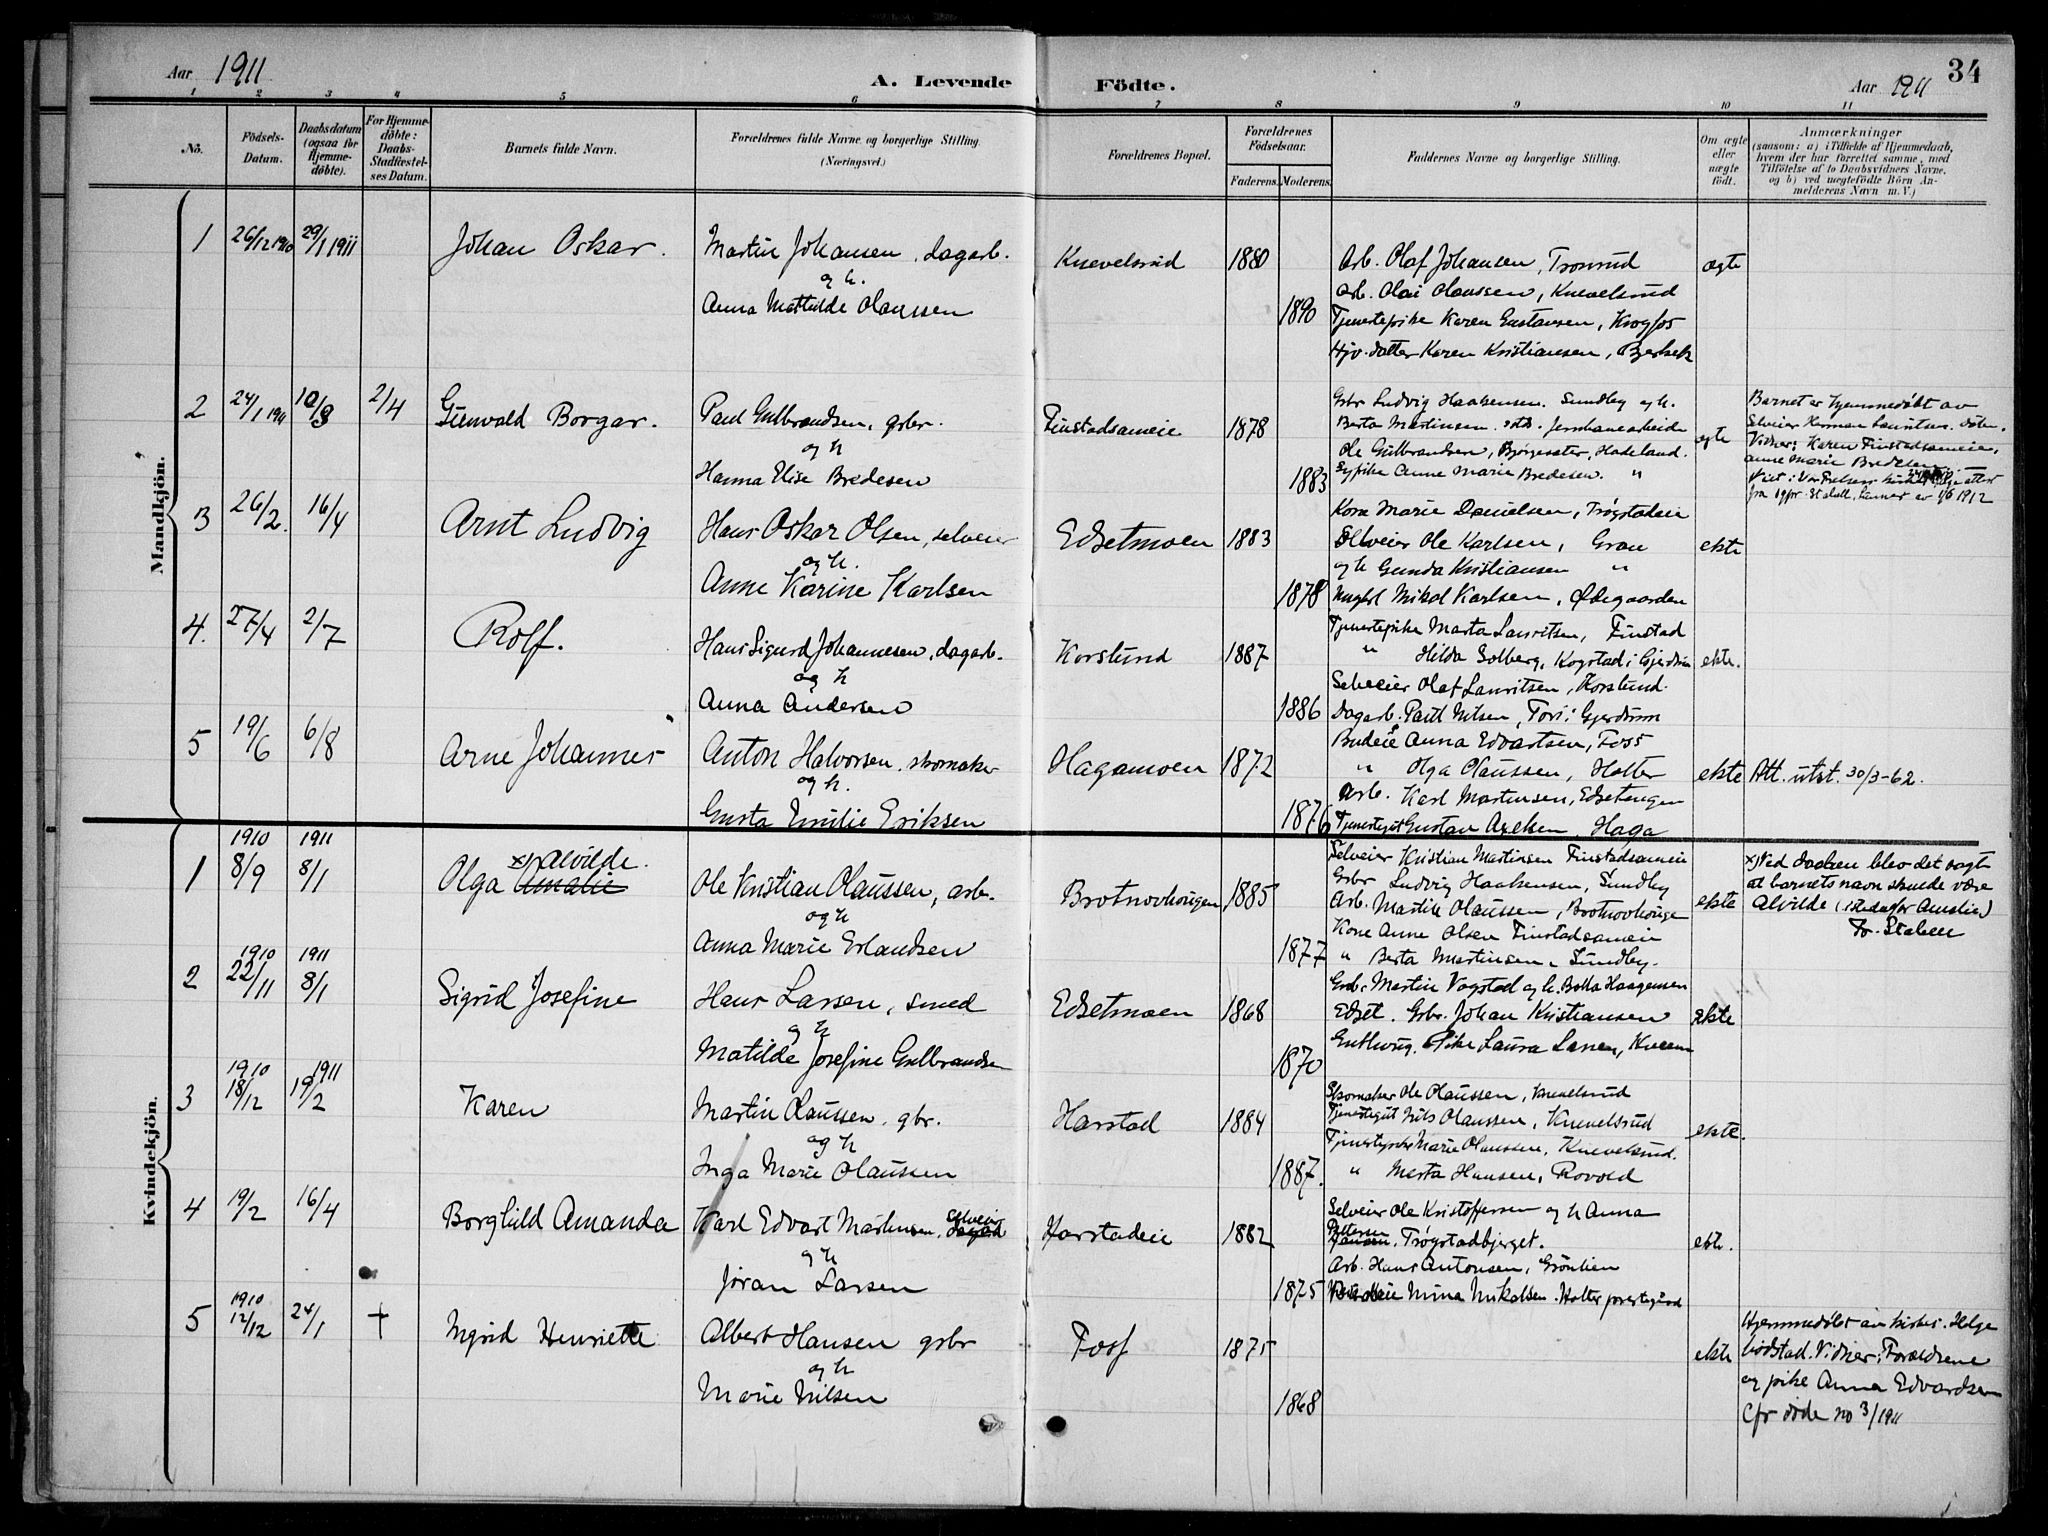 Aar 1911
A. Levende
Födte.
Aar 1911
34
1 2 3 4 5 6 7 8 9 10 11
No.
Födsels-
Datum.
Daabsdatum
(ogsaa för
Hjemme-
döbte).
For Hjemme-
döbte:
Daabs-
Stadfæstel-
ses Datum.
Barnets fulde Navn.
Forældrenes fulde Navne og borgerlige Stilling.
(Næringsvei.)
Forældrenes Bopæl.
Forældrenes
Födselsaar.
Faderens. Moderens.
Faddernes Navne og borgerlige Stilling.
Om ægte
eller
uægte
födt.
Anmærkninger
(saasom: a) i Tilfælde af Hjemmedaab,
hvem der har forrettet samme, med
Tilföielse af to Daabsvidners Navne,
og b) ved uægtefödte Börn An-
melderens Navn m. V.)
Mandkjön.
1 26/12 1910 29/1 1911 Johan Oskar. Martin Johansen, dagarb. Knevelsrud 1880 Arb. Olaf Johansen, Tronrud ægte
og h.
Anna Mathilde Olaussen 1890
Arb. Olai Olaussen, Knevelsrud
Tjenestepike Karen Gustavsen, Krogfos
datter Karen Kristiansen,
2 24/1 1911 10/3 2/4 Gunvald Borgar. Paul Gulbrandsen, gsbr. Finstadsameie 1878 ægte
og h
Hanna Elise Bredesen 1883
Gsbr Ludvig Haakensen. Sundby og h.
Berta Martinsen.
Ole Gulbrandsen, Hadeland.
Sypike Anne Marie Bredesen. "
Barnet er hjemmedøbt av
Selveier
Vidner: Karen Finstadsameie,
Anne Marie Bredesen
3 26/2. 16/4 Arnt Ludvig Hans Oskar Olsen, selveier Edsetmoen 1883 ekte
og h.
Anne Karine Karlsen 1878
Kone Marie Danielsen, Trøgstadeie
Selveier Ole Karlsen, Gran
og h Gunda Kristiansen "
Ungkl Mikal Karlsen, Ødegaarden
4. 27/4 2/7 Rolf. Hans Sigurd Johannesen, dagarb. Korslund 1887 ekte.
og h
Anna Andersen 1886
Tjenestepike Marta Lauritsen, Finstad
" Hilda Solberg, Kogstad i Gjerdrum
Selveier Olaf Lauritsen, Korslund.
Dagarb. Paul Nilsen, i Gjerdrum
5 19/6 6/8 Arne Johannes Anton Halvorsen, skomaker Hagamoen 1872 ekte Att. utst. 30/3-62.
og h.
Gusta Emilie Eriksen 1876
Budeie Anna Edvartsen, Foss
" Olga Olaussen, Holter
Arb. Karl Martinsen, Edsetengen
Tjenestegut Gustav Axelsen, Haga
Kvindekjön.
1910 1911
1 8/9 8/1 Olga x) Alvilde. Amalie Ole Kristian Olaussen, arb. Brotnovhougen 1885 ekte
og h
Anna Marie Erlandsen 1877
Selveier Kristian Martinsen Finstadsameie
Gsbr Ludvig Haakensen, Sundby
Arb. Martin Olaussen, Brotnovhougen
Kone Anne Olsen Finstadsameie
" Berta Martinsen, Sundby.
x) Ved daaben blev det sagt
at barnets navn skulde være
Alvilde (istedetfor Amalie)
1910 1911
2 22/11 8/1 Sigrid Josefine Hans Larsen, smed Edsetmoen 1868 ekte
og h
Matilde Josefine Gulbrandsen 1870
Gsbr. Martin Vogstad og h. Haagensen
Edset. Gsbr. Johan Kristiansen
Pike Laura Larsen,
1910 1911
3 18/12 19/2 Karen Martin Olaussen. gbr. Harstad 1884 ekte.
og h
Inga Marie Olaussen 1887.
Skomaker Ole Olaussen, Knevelsrud
Tjenestegut Nils Olaussen, Knevelsrud
Tjenestepike Marie Olaussen, Knevelsrud.
" Marta Hansen, Rovold
4 19/2 16/4 Borghild Amanda Karl Edvart Martinsen, selveier Harstadeie 1882 ekte.
og h
Jøran Larsen 1875
Selveier Ole Kristoffersen og h Anna
Pettersen Trøgstadbjerget.
Arb. Hans Antonsen, Grönlien
Mina Mikalsen. Holter prestegaard
1910
5 12/12 24/1 + Ingrid Henriette Albert Hansen gsbr Foss 1875 ekte
og h
Marie Nilsen 1868
Hjemmedøbt av kirkes. Helge
Vidner: Forældrene
og pike Anna Edvardsen
Cfr døde no 3/1911